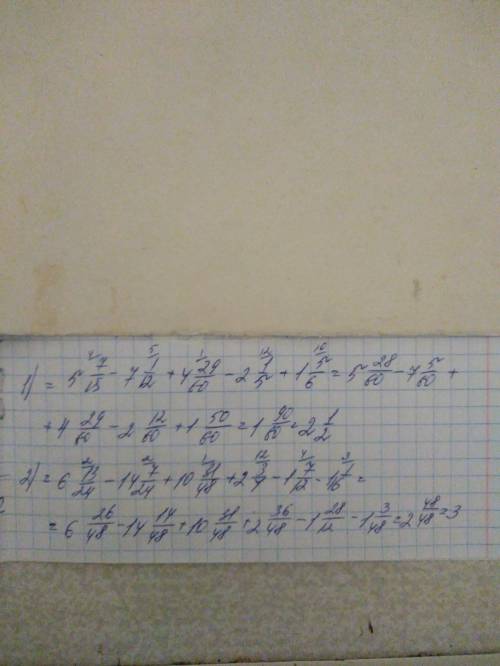 1) = 5 7/15 - 7 1/12 + 4 29/60 - 2 1/5 + 1 5/6 = 5 28/60 - 7 5/60 +
+ 4 29/60 - 2 12/60 + 1 50/60 = 1 90/60 = 2 1/2
2) = 6 13/24 - 14 7/24 + 10 31/48 + 2 3/4 - 1 7/12 - 1 1/16 =
= 6 26/48 - 14 14/48 + 10 31/48 + 2 36/48 - 1 28/11 - 1 3/48 = 2 48/48 = 3